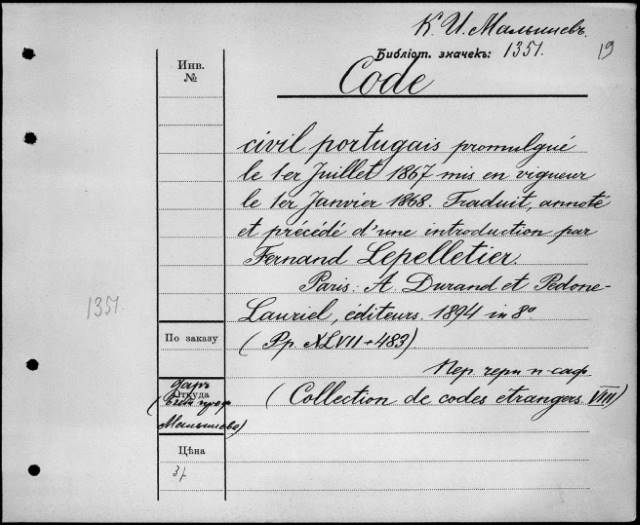 К. И. Малышевъ.
Библіот. значекъ: 1351.
19
Инв.
№
Code
civil portugais promulgué
le 1er Juillet 1867 mis en vigueur
le 1er Janvier 1868. Traduit, annoté
et précédé d'une introduction par
Fernand Lepelletier.
Paris: A. Durand et Pedone-
Lauriel, éditeurs. 1894 in 8º
1351.
По заказу
(Pp. XLVII+483)
Пер. черн п-саф
Даръ
Откуда
Малышева)
(Collection de codes etrangers VIII)
Цѣна
3/